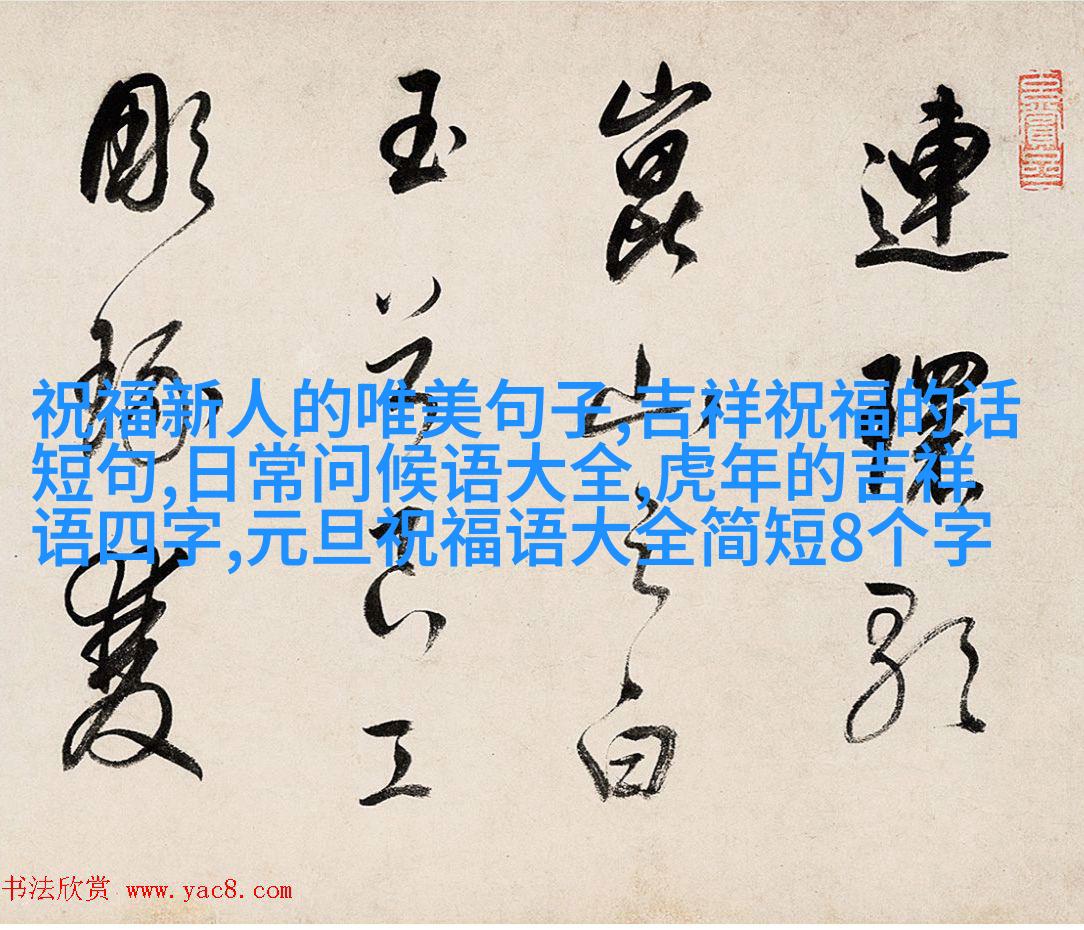 連環歌
崑山之白
玉兮良工
彫琢雙
祝福新人的唯美句子,吉祥祝福的话
短句,日常问候语大全,虎年的吉祥
语四字,元旦祝福语大全简短8个字
书法欣赏 www.yac8.com